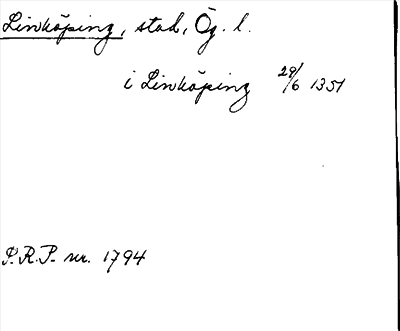 Linköping, stad, Ög. l.
i Linköping 29/6 1351
P.R.P. nr. 1794